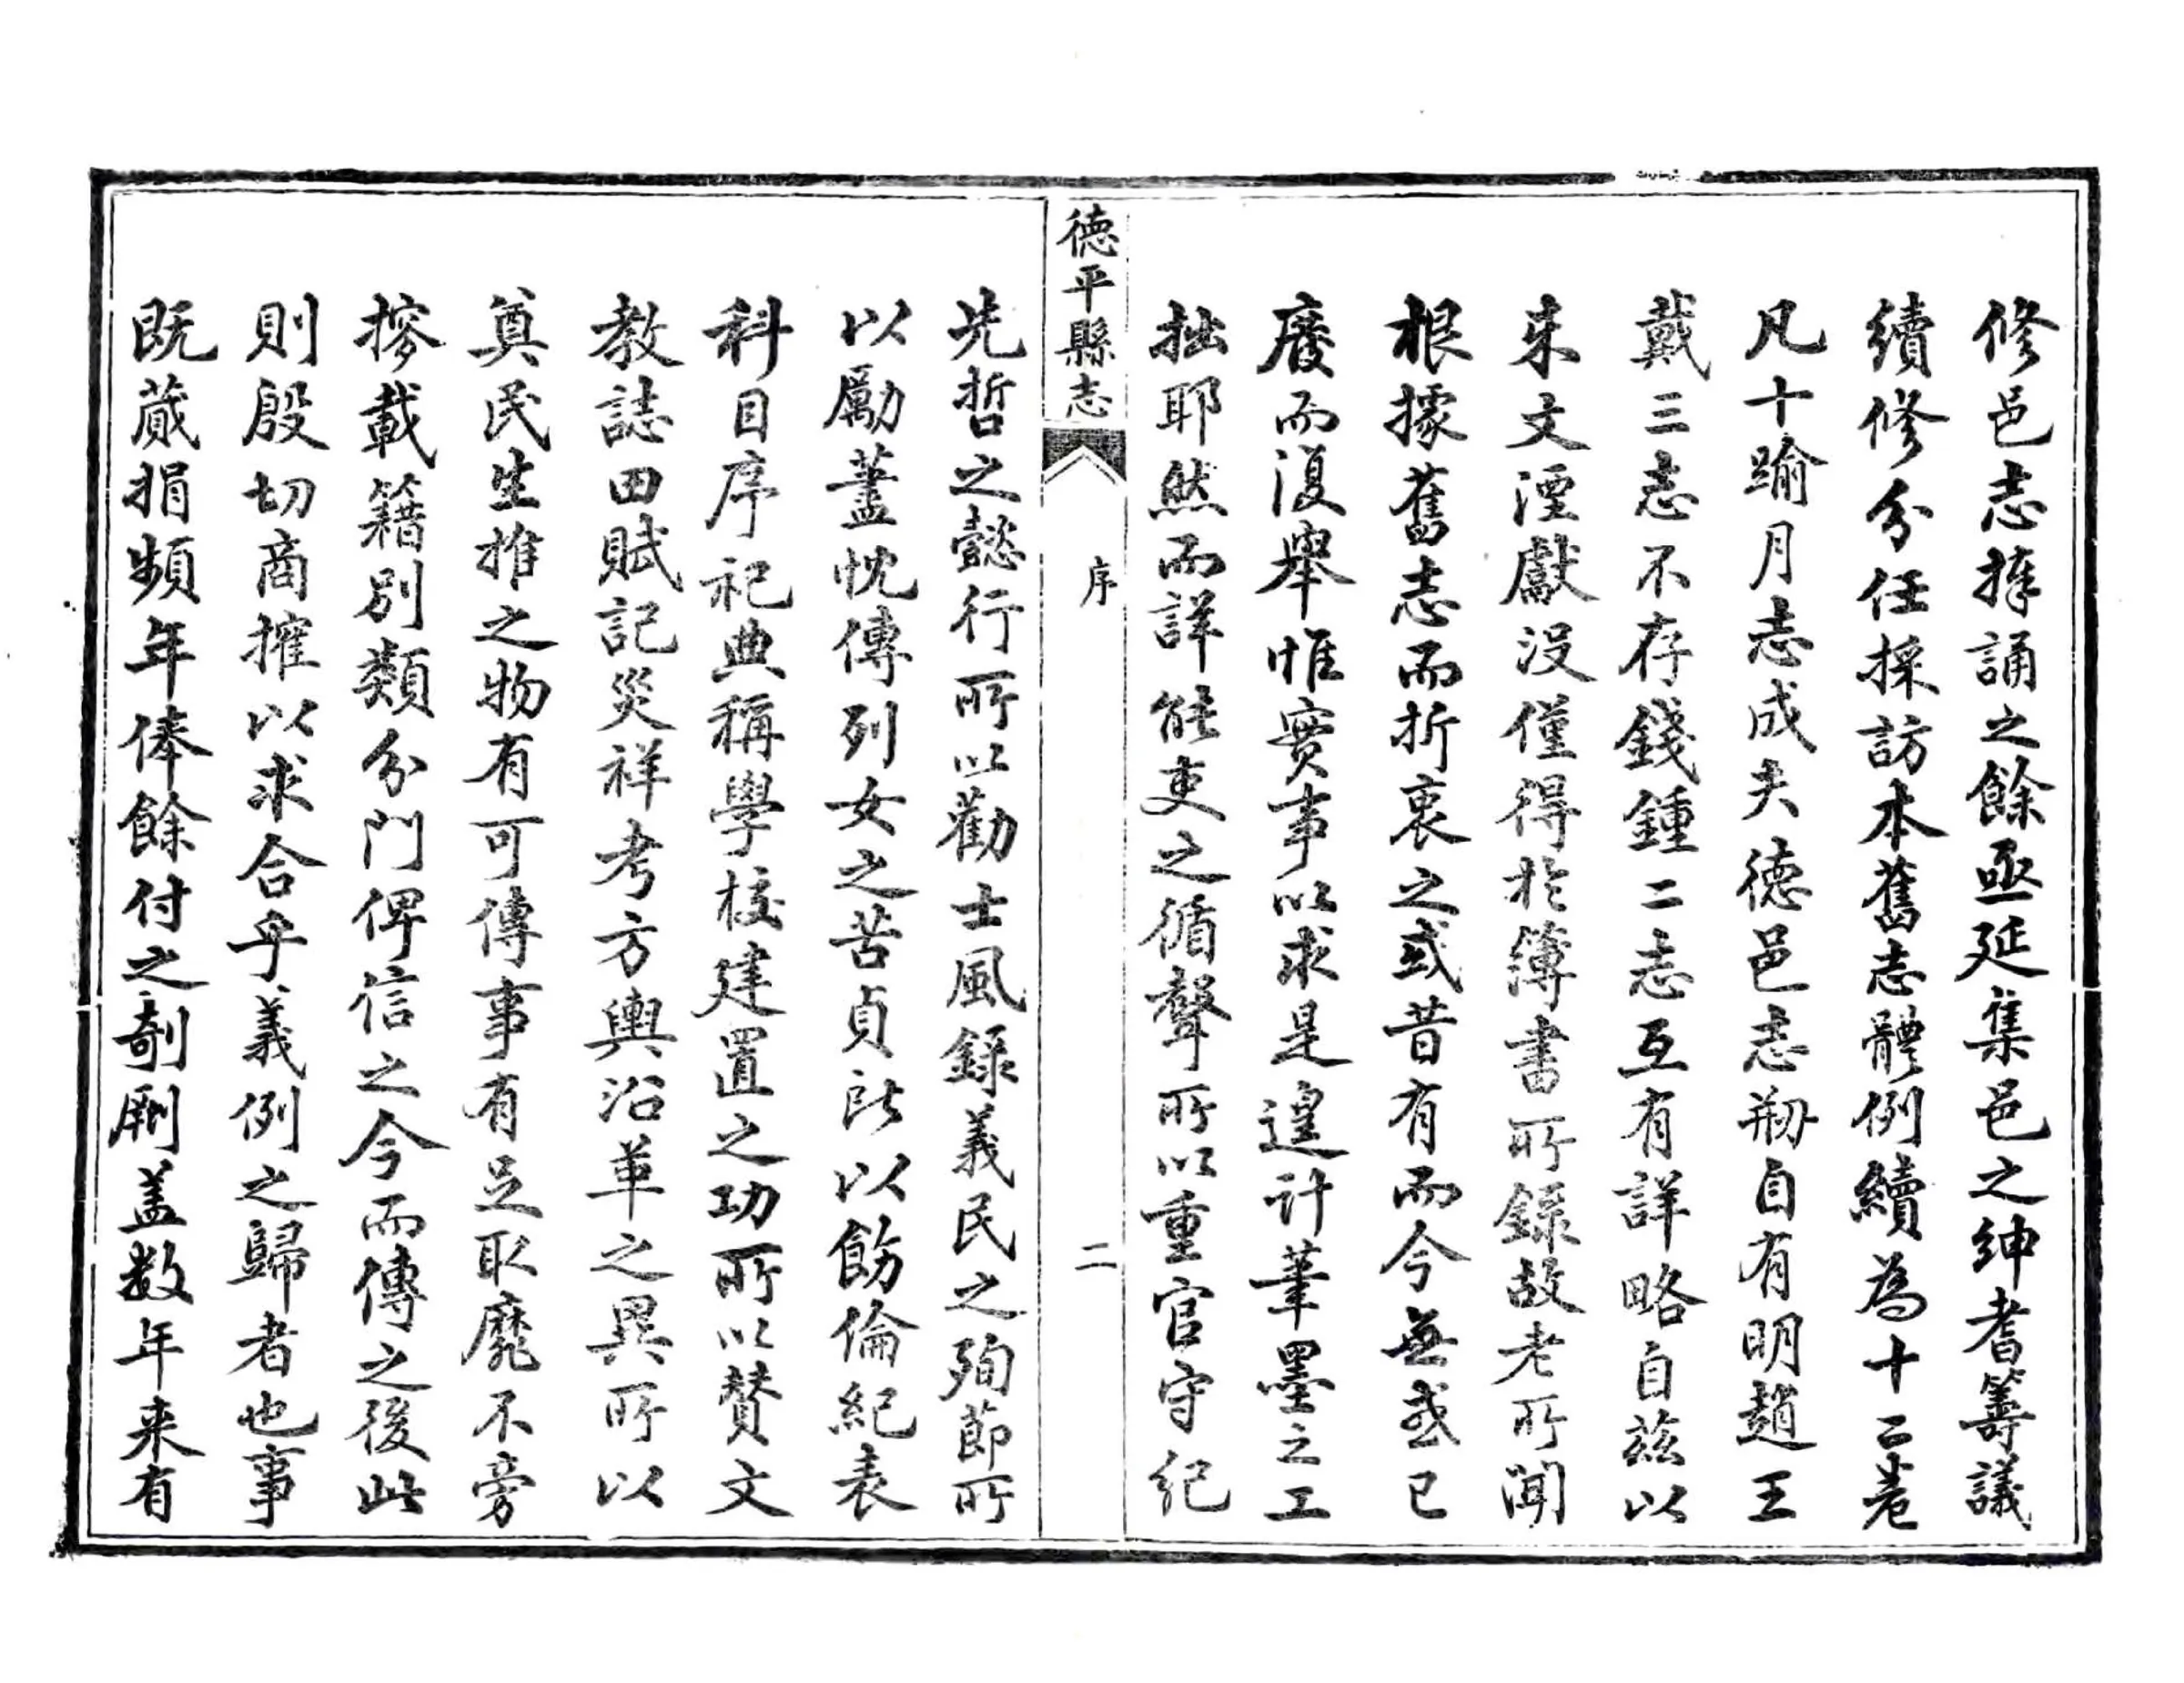 修邑志捧誦之餘亟延集邑之紳耆籌議
續修分任採訪本舊志體例續為十二卷
凡十踰月志成夫德邑志剏自有明趙王
戴三志不存錢鍾二志互有詳略自茲以
来文湮獻没僅得於簿書所録故老所聞
根據舊志而折衷之或昔有而今無或已
廢而復舉惟實事以求是遑計筆墨之工
拙耶然而詳能吏之循聲所以重官守紀
德平縣志
序
二
先哲之懿行所以勸士風録義民之殉節所
以勵藎忱傳列女之苦貞所以飭倫紀表
科目序祀典稱學校建置之功所以贊文
教誌田賦記災祥考方輿沿革之異所以
奠民生推之物有可傳事有足取靡不旁
搜載籍別類分門俾信之今而傳之後此
則殷切商搉以求合乎義例之歸者也事
既蕆捐頻年俸餘付之剞劂盖数年来有